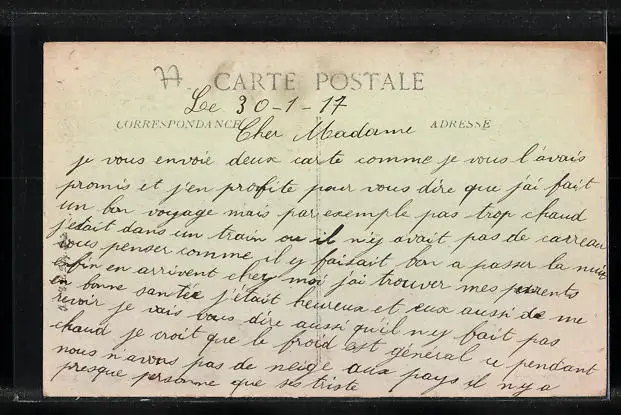 77
CARTE POSTALE
Le 30-1-17
CORRESPONDANCE
ADRESSE
Cher Madame
je vous envoie deux carte comme je vous l'avais
promis et j'en profite pour vous dire que j'ai fait
un bon voyage mais par exemple pas trop chaud
j'etait dans un train ou il n'y avait pas de carreau
vous penser comme il y faisait bon a passer la nuit
enfin en arrivent chez moi j'ai trouver mes parents
en bonne santée j'était heureux et eux aussi de me
revoir je vais vous dire aussi qu'il n'y fait pas
chaud je croit que le froid est général ce pendant
nous n'avons pas de neige aux pays il n'y a
presque personne que ses triste